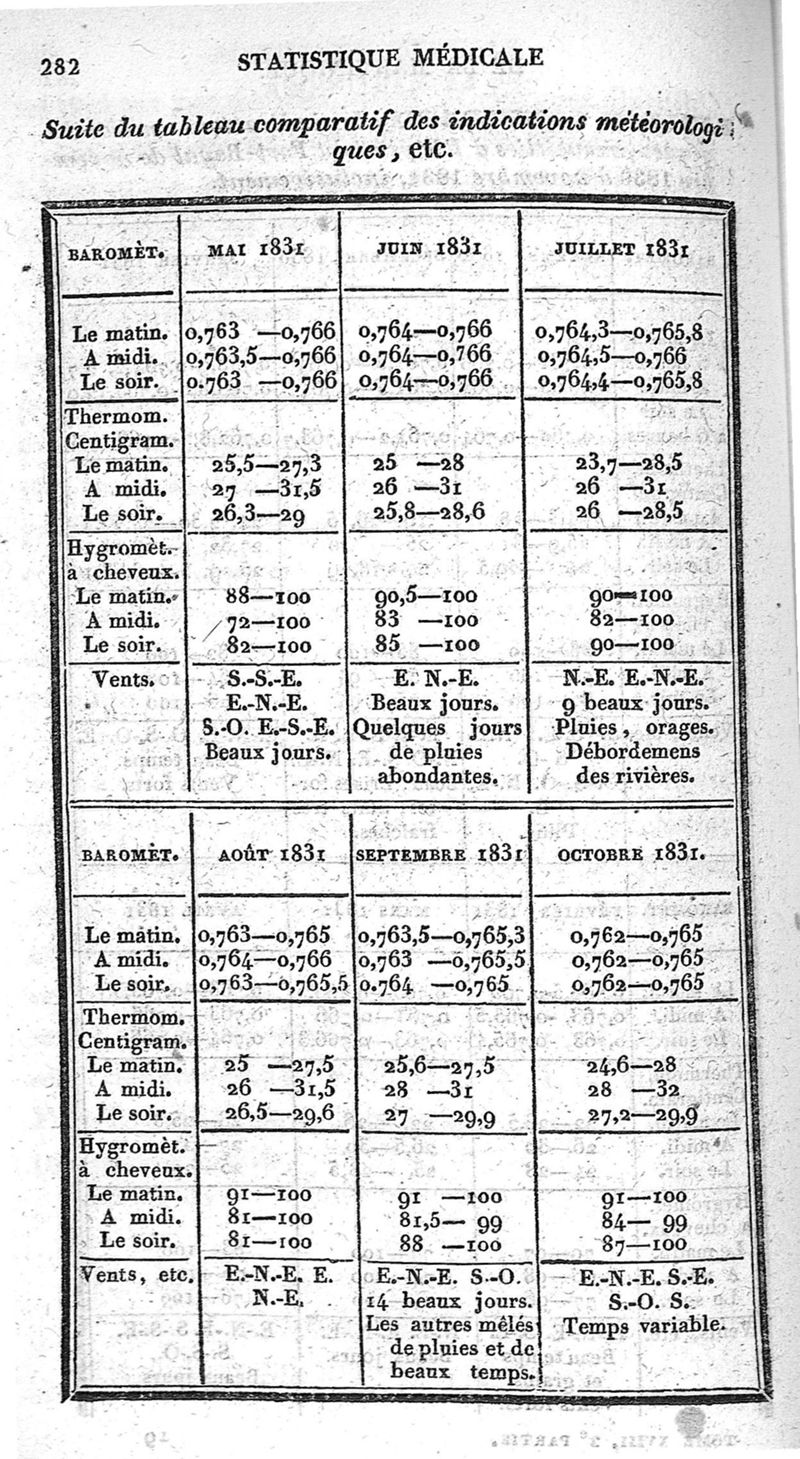 282 STATISTIQUE MÉDICALE
Suite du tableau comparatif des indications météorologi-
ques, etc.
BAROMÈT. MAI 1831 JUIN 1831 JUILLET 1831
Le matin. 0,763 —0,766 0,764—0,766 0,764,3—0,765,8
A midi. 0,763,5—0,766 0,764—0,766 0,764,5—0,766
Le soir. 0.763 —0,766 0,764—0,766 0,764,4—0,765,8
Thermom.
Centigram.
Le matin. 25,5—27,3 25 —28 23,7—28,5
A midi. 27 —31,5 26 —31 26 —31
Le soir. 26,3—29 25,8—28,6 26 —28,5
Hygromèt.
à cheveux.
Le matin. 88—100 90,5—100 90—100
A midi. 72—100 83 —100 82—100
Le soir. 82—100 85 —100 90—100
Vents. S.-S.-E. E. N.-E. N.-E. E.-N.-E.
E.-N.-E. Beaux jours. 9 beaux jours.
S.-O. E.-S.-E. Quelques jours Pluies, orages.
Beaux jours. de pluies Débordemens
abondantes. des rivières.
BAROMÈT. AOÛT 1831 SEPTEMBRE 1831 OCTOBRE 1831.
Le matin. 0,763—0,765 0,763,5—0,765,3 0,762—0,765
A midi. 0,764—0,766 0,763 —0,765,5 0,762—0,765
Le soir. 0,763—0,765,5 0.764 —0,765 0,762—0,765
Thermom.
Centigram.
Le matin. 25 —27,5 25,6—27,5 24,6—28
A midi. 26 —31,5 28 —31 28 —32
Le soir. 26,5—29,6 27 —29,9 27,2—29,9
Hygromèt.
à cheveux.
Le matin. 91—100 91 —100 91—100
A midi. 81—100 81,5— 99 84— 99
Le soir. 81—100 88 —100 87—100
Vents, etc. E.-N.-E. E. E.-N.-E. S.-O. E.-N.-E. S.-E.
N.-E. 14 beaux jours. S.-O. S.
Les autres mêlés Temps variable.
de pluies et de
beaux temps.